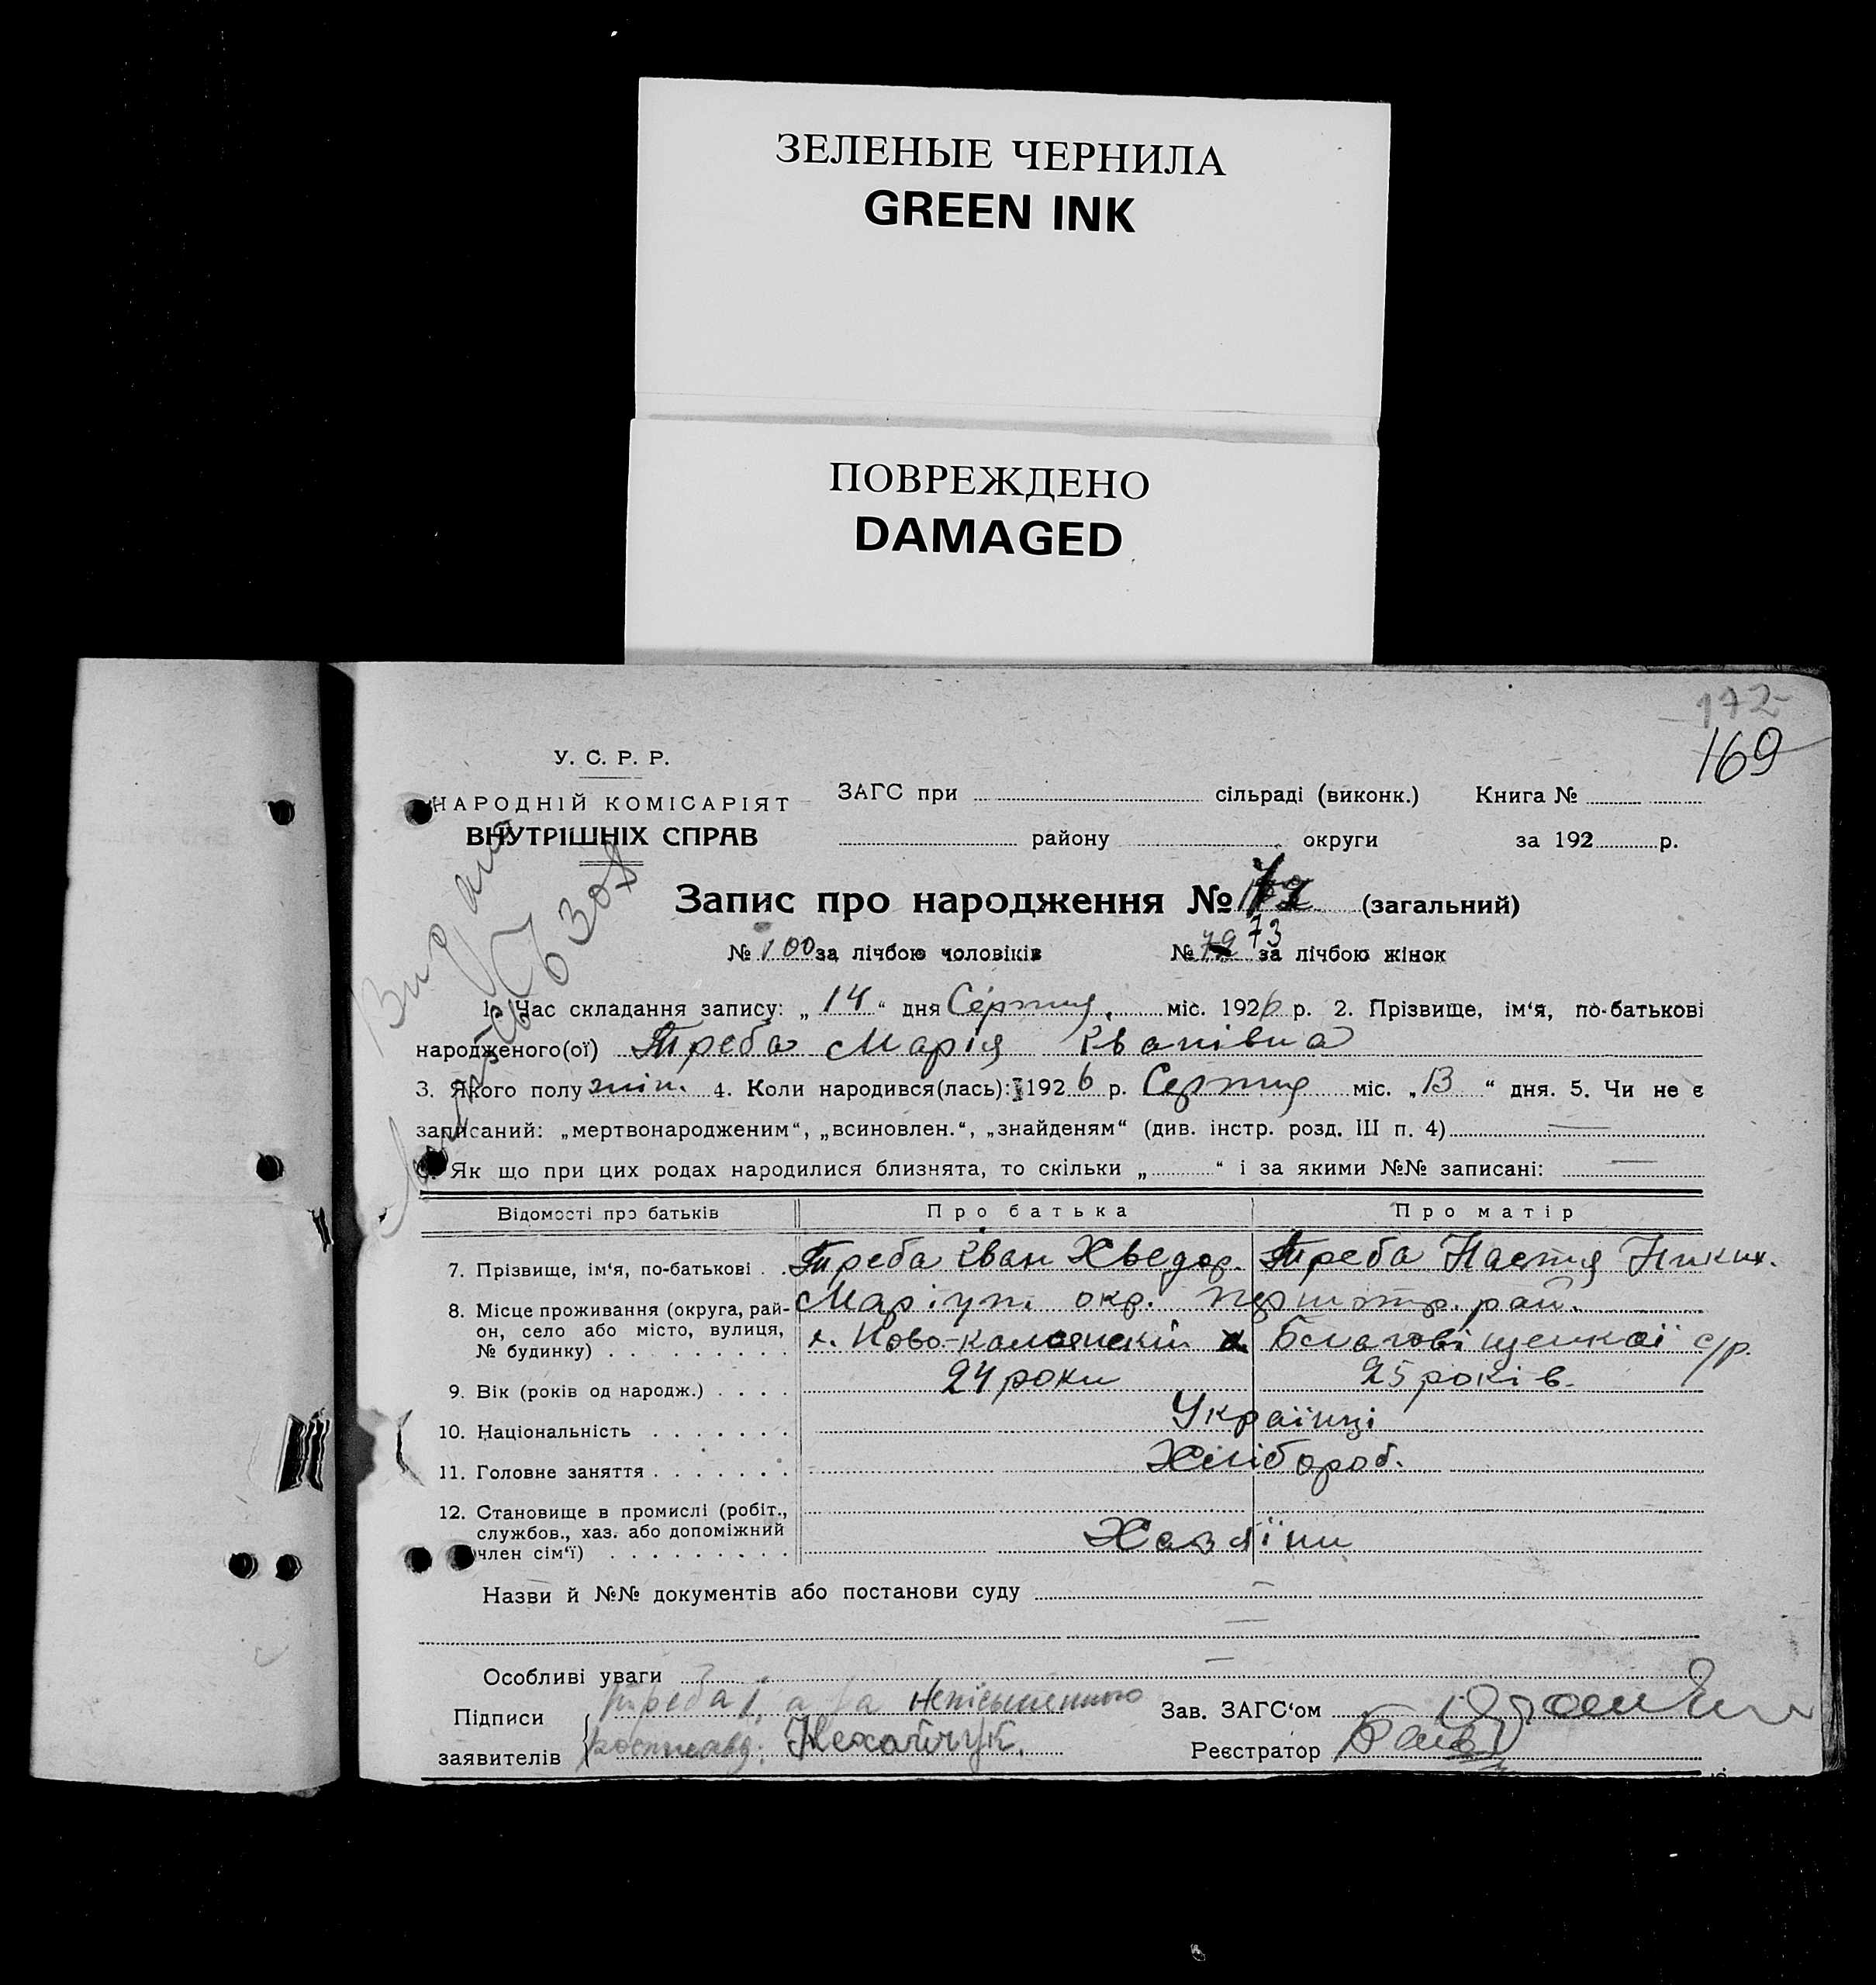 ЗЕЛЕНЫЕ ЧЕРНИЛА
GREEN INK
ПОВРЕЖДЕНО
DAMAGED
172
169
У. С. Р. Р.
НАРОДНІЙ КОМІСАРІЯТ
ВНУТРІШНІХ СПРАВ
ЗАГС при сільраді (виконк.) Книга №
району округи за 192 р.
Запис про народження № (загальний)
№ 100 за лічбою чоловіків № 73 за лічбою жінок
1. Час складання запису: „14“ дня Серпня міс. 1926 р. 2. Прізвище, ім‘я, по-батькові
народженого(ої) Треба Марія Іванівна
3. Якого полу жін. 4. Коли народився(лась): 1926 р. Серпня міс. „13“ дня. 5. Чи не є
записаний: „мертвонародженим“, „всиновлен.“, „знайденям“ (див. інстр. розд. III п. 4) —
6. Як що при цих родах народилися близнята, то скільки „ “ і за якими №№ записані: —
Відомості про батьків Про батька Про матір
7. Прізвище, ім‘я, по-батькові . . Треба Іван Хведор. Треба Настя Никих.
8. Місце проживання (округа, рай- Маріуп. окр. рай.
он, село або місто, вулиця, х. Ново- Благовіщенкої с/р.
№ будинку) . . . . . . . . .
9. Вік (років од народж.) . . . . 24 роки 25 років.
10. Національність . . . . . . . Українці
11. Головне заняття . . . . . . . Хлібороб.
12. Становище в промислі (робіт.,
службов., хаз. або допоміжний Хазяїни
член сім‘ї) . . . . . . . . .
Назви й №№ документів або постанови суду —
—
Особливі уваги —
Підписи Треба І. а за неписьменного Зав. ЗАГС‘ом
заявителів Нехайчук. Реєстратор